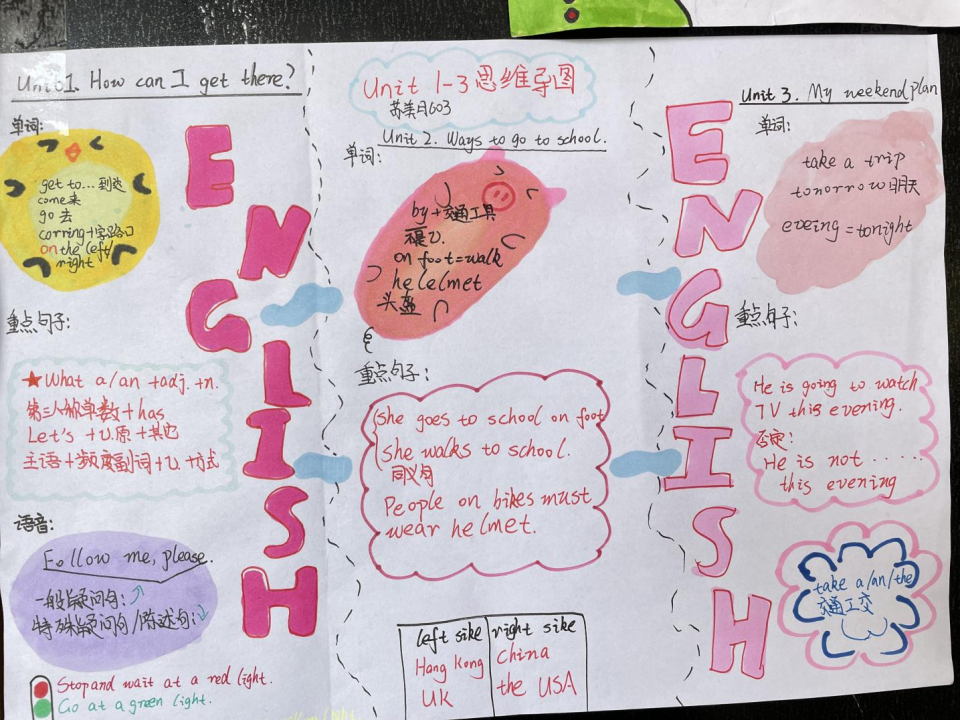 Unit 1. How can I get there?
单词:
get to...到达
come来
go 去
corring+字路口
on the left/
right
重点句子:
★What a/an +adj. +n.
第三人称单数+has
Let's +v.原+其它
主语+频度副词+v.+方式
语音:
Follow me, please.
一般疑问句:↗
特殊疑问句/陈述句:↘
Stop and wait at a red light.
Go at a green light.
ENGLISH
Unit 1-3思维导图
603
Unit 2. Ways to go to school.
单词:
by+交通工具
不是v.
on foot=walk
helelmet
头盔
重点句子:
she goes to school on foot
she walks to school.
同义句
People on bikes must
wear helmet.
left sike right sike
Hong Kong China
UK the USA
ENGLISH
Unit 3. My weekend plan
单词:
take a trip
tomorrow明天
eveing=tonight
重点句子:
He is going to watch
TV this evening.
否定:
He is not ......
this evening
take a/an/the
交通工交